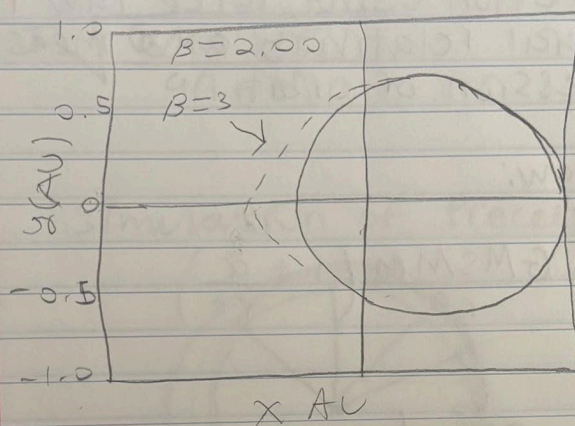 1.0
β=2.00
β=3
0.5
y(AU)
0
-0.5
-1.0
x AU